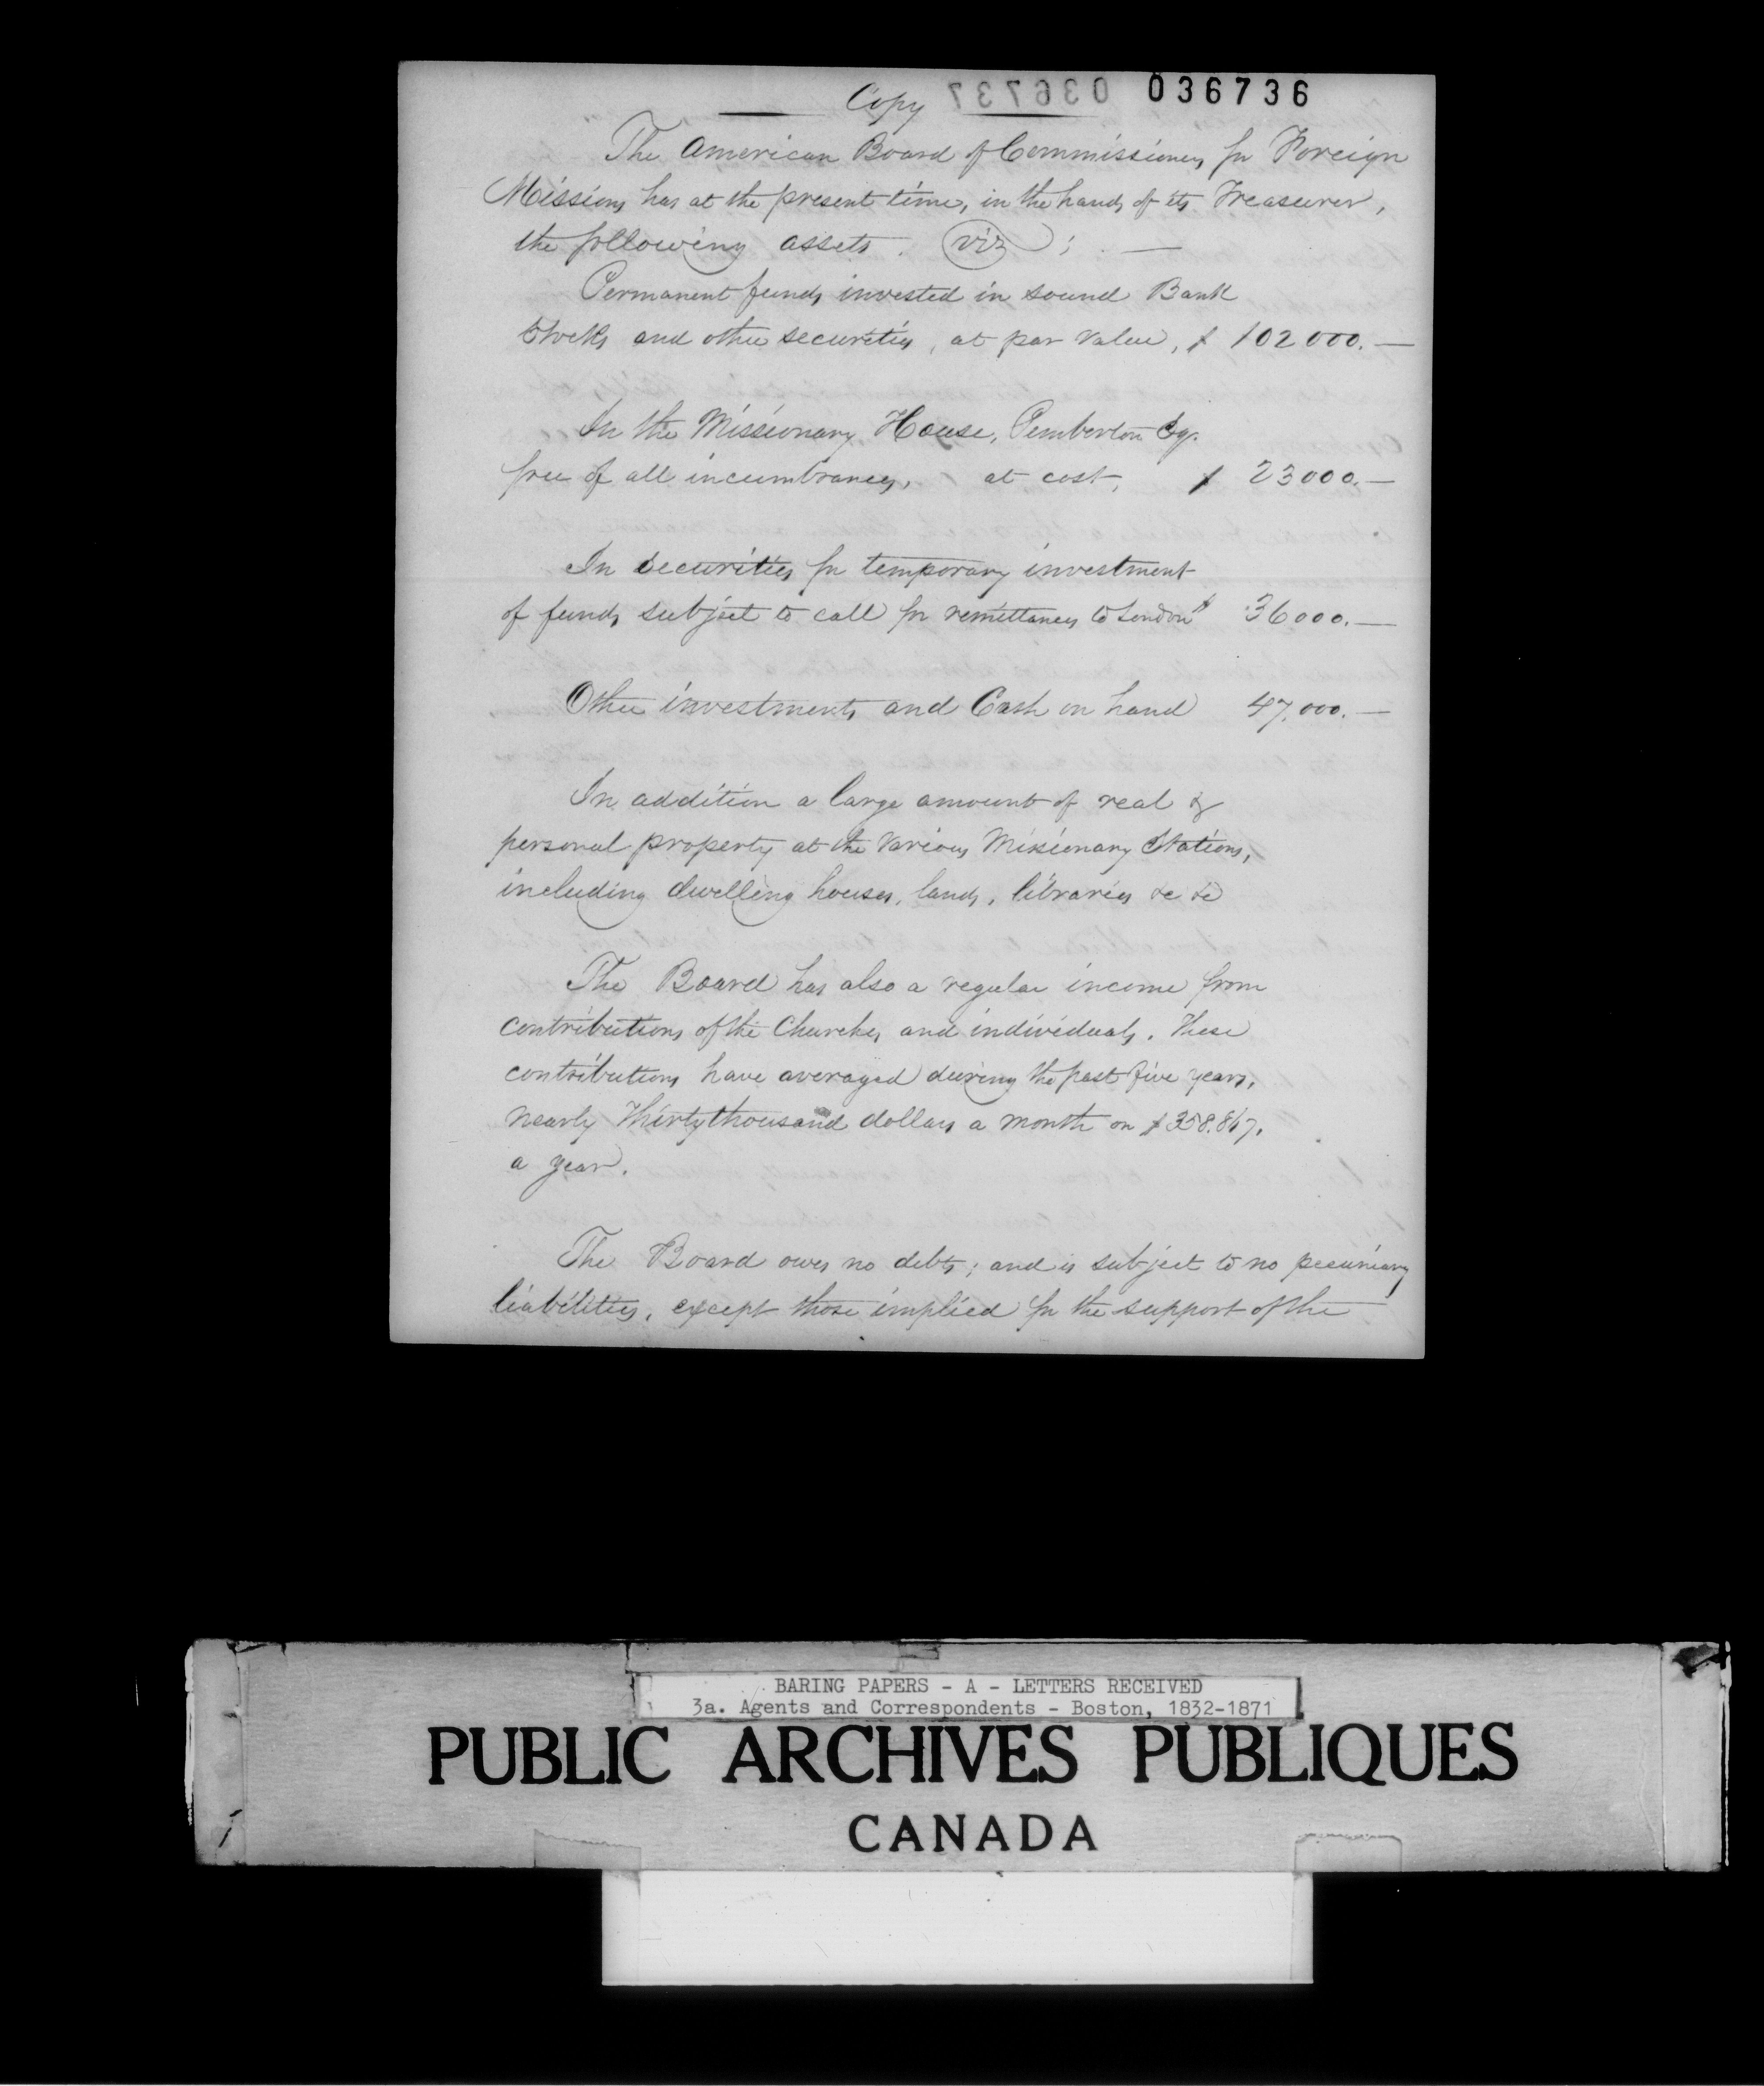 Copy 036737 036736
The American Board of Commissioners for Foreign
Missions has at the present time, in the hands of its Treasurer,
the following assets. viz; —
Permanent funds invested in sound Bank
Stocks and other securities, at par value, $ 102000.—
In the Missionary House, Pemberton Sq.
free of all incumbrances, at cost, $ 23000.—
In securities for temporary investment
of funds subject to call for remittances to London $ 36000.—
Other investments and Cash on hand 47,000.—
In addition a large amount of real &
personal property at the various Missionary Stations,
including dwelling houses, lands, libraries &c &c
The Board has also a regular income from
contributions of the Churches and individuals. These
contributions have averaged during the past five years,
nearly Thirty thousand dollars a month or $358.867.
a year.
The Board owes no debts; and is subject to no pecuniary
liabilities, except those implied for the support of the
BARING PAPERS - A - LETTERS RECEIVED
3a. Agents and Correspondents - Boston, 1832-1871
PUBLIC ARCHIVES PUBLIQUES
CANADA